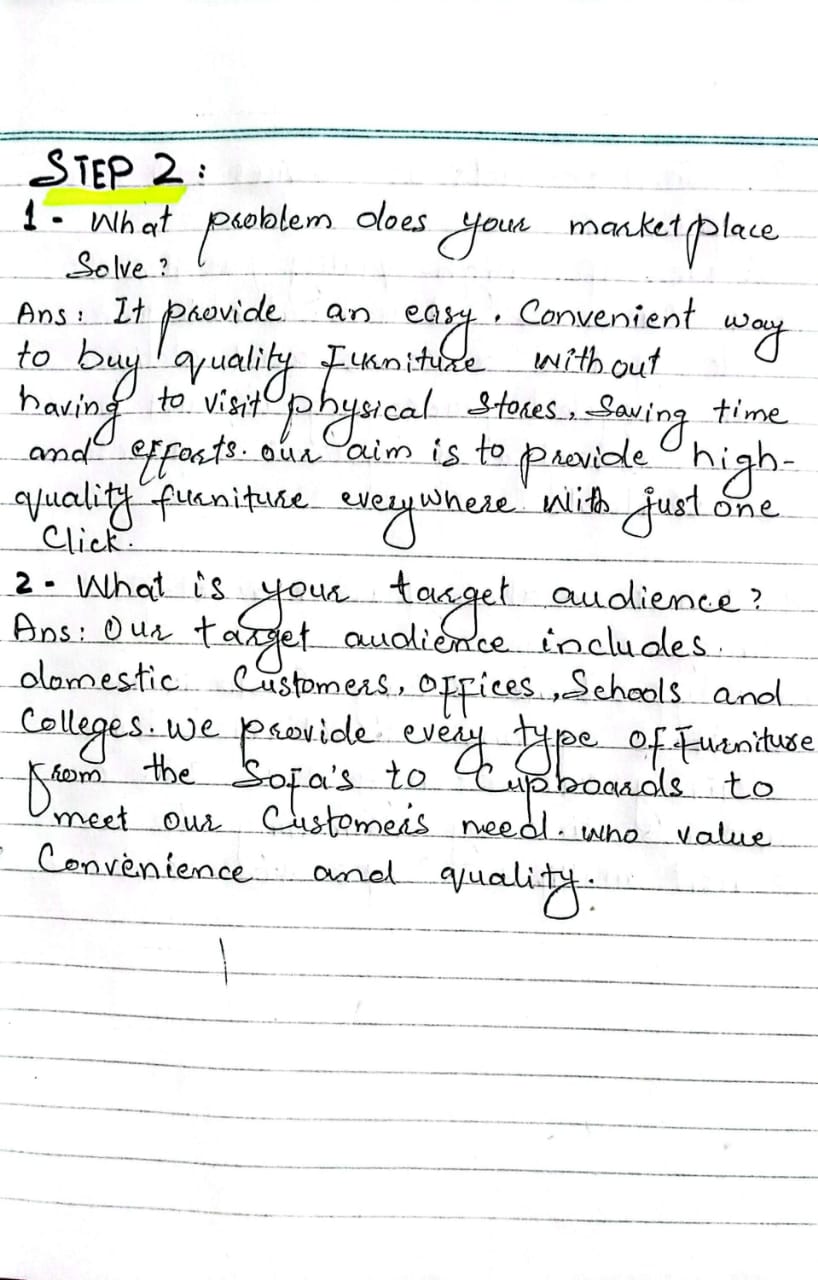 STEP 2 :
1 - What problem does your marketplace
Solve ?
Ans : It provide an easy. Convenient way
to buy quality Furniture without
having to visit physical stores, Saving time
and efforts. our aim is to provide high-
quality furniture everywhere with just one
Click.
2 - What is your target audience ?
Ans : Our target audience includes
domestic Customers, offices, Schools and
Colleges. we provide every type of Furniture
from the Sofa's to Cupboards to
meet our Customers need. who value
Convenience and quality.